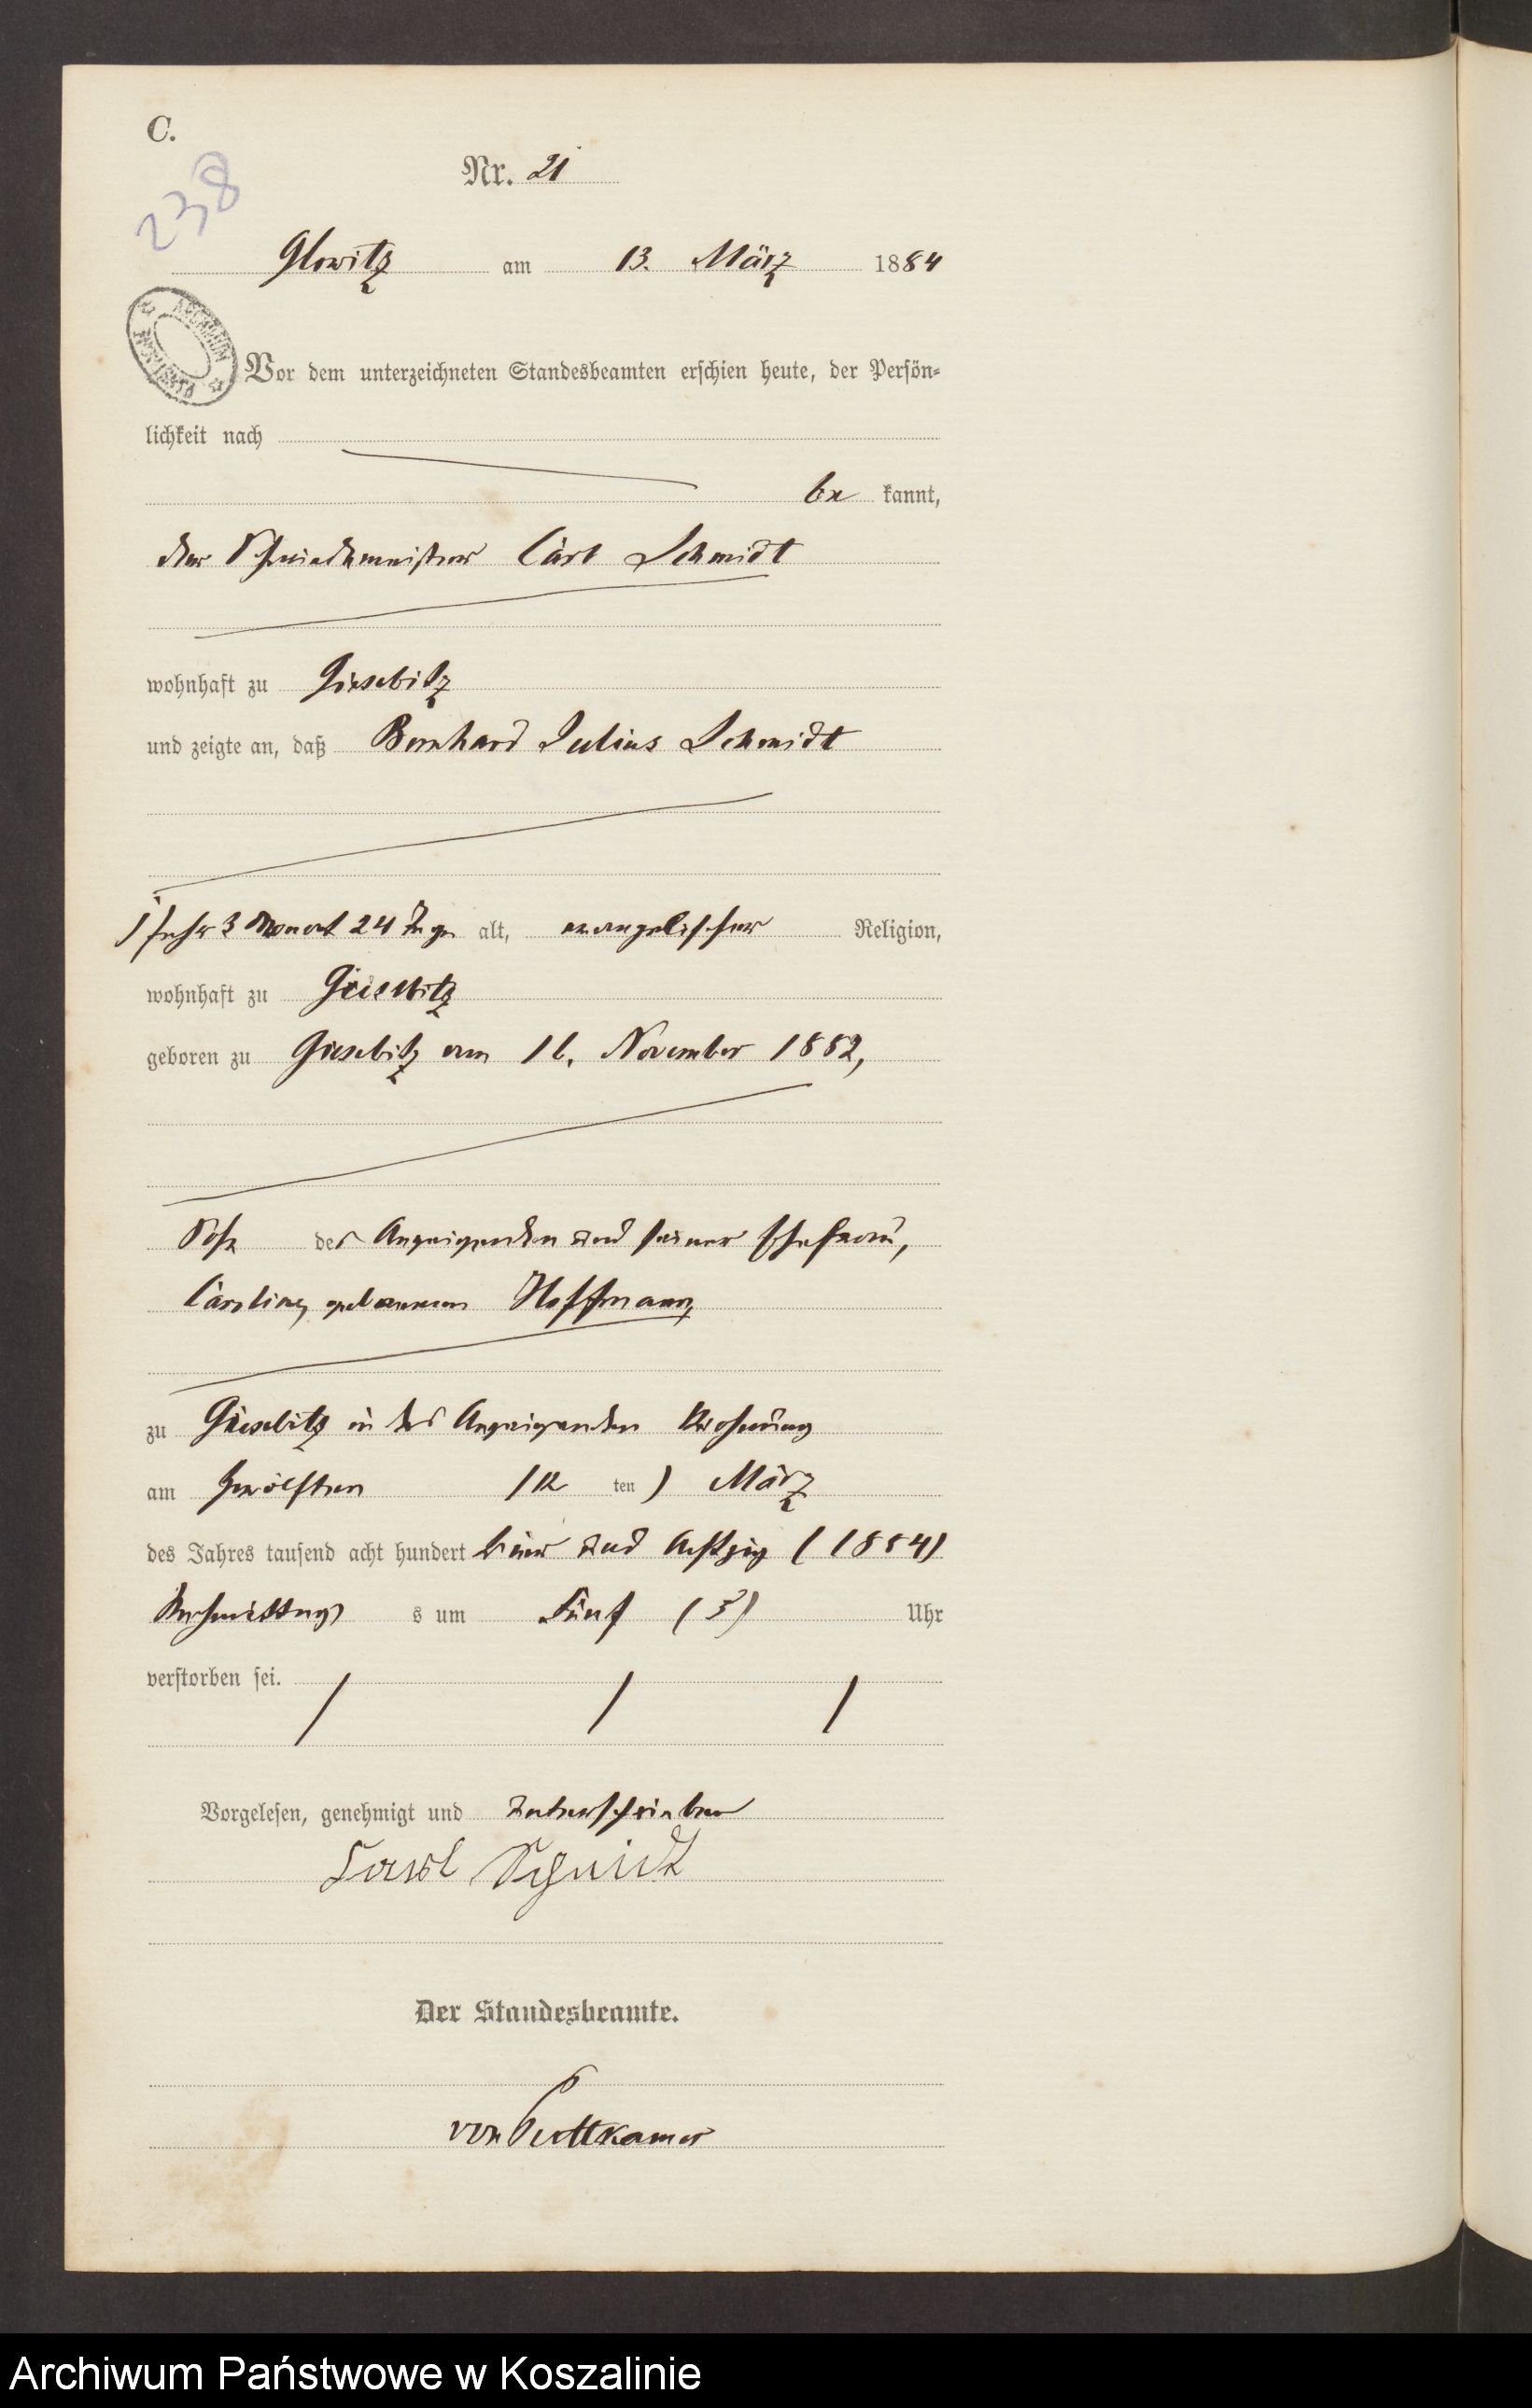 C.
238
Nr. 21
Glowitz am 13. März 1884
Vor dem unterzeichneten Standesbeamten erschien heute, der Persön-
lichkeit nach
be kannt,
der Schmiedemeister Carl Schmidt
wohnhaft zu Giesebitz
und zeigte an, daß Bernhard Julius Schmidt
1 Jahr 3 Monat 24 Tage alt, evangelischer Religion,
wohnhaft zu Giesebitz
geboren zu Giesebitz am 16. November 1882,
Sohn des Anzeigenden und seiner Ehefrau,
Caroline, geborenen Hoffmann,
zu Giesebitz in des Anzeigenden Wohnung
am zwölften (12 ten) März
des Jahres tausend acht hundert vier und achtzig (1884)
Nachmittag s um Fünf (5) Uhr
verstorben sei.
Vorgelesen, genehmigt und unterschrieben
Carl Schmidt
Der Standesbeamte.
von Puttkamer
Archiwum Państwowe w Koszalinie